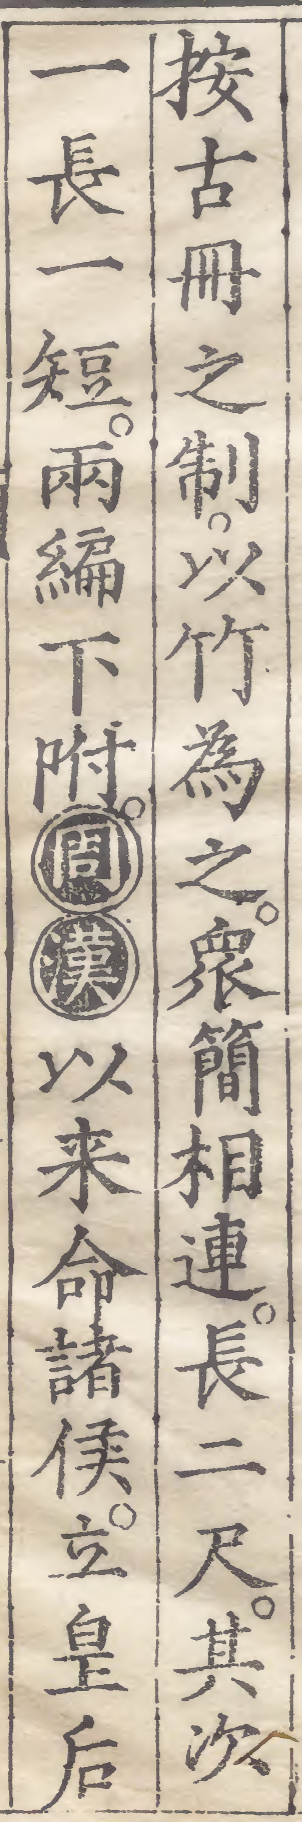 按古冊之制。以竹為之。衆簡相連。長二尺。其次
一長一短。兩編下咐。周漢以来命諸侯。立皇后